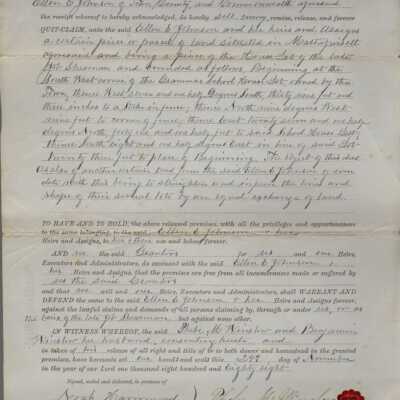 Ellen E. Johnson of Town, County, and Commonwealth aforesaid
the receipt whereof is hereby acknowledged, do hereby sell, convey, remise, release, and forever
QUIT-CLAIM, unto the said Ellen E. Johnson and her heirs and Assigns
a certain piece or parcel of land situated in Mattapoisett
aforesaid and being a piece of the Home Lot of the late
Sherman and bounded as follows. Beginning at the
South West corner of the Grammar School House Lot owned by the
Town, thence West seven and one half degrees South, thirty nine feet and
three inches to a stake in fence; thence North nine degrees West
nine feet to corner of fence; thence East twenty seven and one half
degrees North, forty one and one half feet to said School House Lot;
thence South Eight and one half degrees East in line of said Lot
Twenty three feet to place of Beginning. The object of this deed
as also of another certain deed from the said Ellen E. Johnson of even
date with this being to straighten and improve the lines and
shape of their several lots by an equal exchange of land.
TO HAVE AND TO HOLD, the above released premises, with all the privileges and appurtenances
to the same belonging, to the said Ellen E. Johnson & her
Heirs and Assigns, to her & their use and behoof forever.
AND we the said Grantors for us and our Heirs,
Executors and Administrators, do covenant with the said Ellen E. Johnson &
her Heirs and Assigns, that the premises are free from all incumbrances made or suffered by
us the said Grantors
and that we will and our Heirs, Executors and Administrators, shall WARRANT AND
DEFEND the same to the said Ellen E. Johnson & her Heirs and Assigns forever,
against the lawful claims and demands of all persons claiming by, through or under us, or
heirs of the late Sherman, but against none other.
IN WITNESS WHEREOF, the said M. Winslow and Benjamin
Winslow her husband, consenting hereto and
in token of his release of all right and title of or to both dower and homestead in the granted
premises, have hereunto set our hands and seals this 29th day of November
in the year of our Lord one thousand eight hundred and eighty eight.
Signed, sealed and delivered, in presence of
Noah Hammond